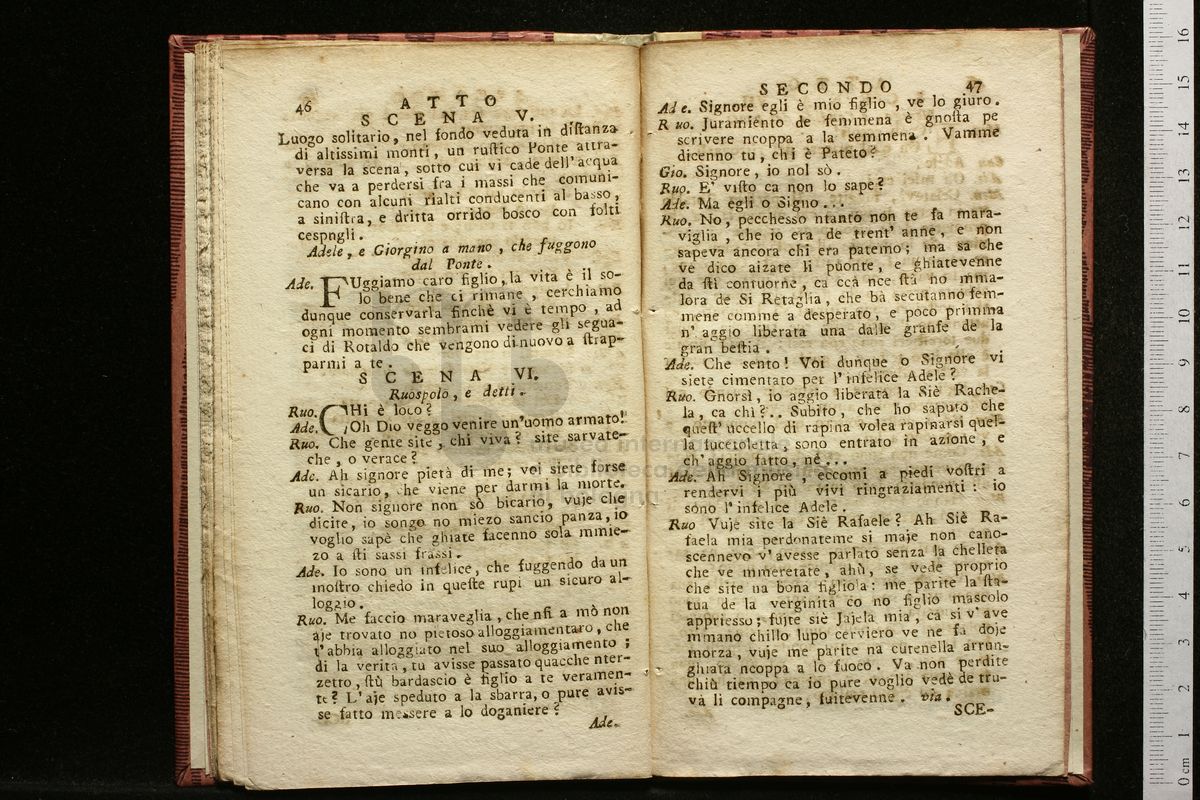 46
ATTO
SCENA V.
Luogo solitario, nel fondo veduta in distanza
di altissimi monti, un rustico Ponte attra-
versa la scena, sotto cui vi cade dell'acqua
che va a perdersi fra i massi che comuni-
cano con alcuni rialti conducenti al basso,
a sinistra, e dritta orrido bosco con folti
cespugli.
Adele, e Giorgino a mano, che fuggono
dal Ponte.
Ade. FUggiamo caro figlio, la vita è il so-
lo bene che ci rimane, cerchiamo
dunque conservarla finchè vi è tempo, ad
ogni momento sembrami vedere gli segua-
ci di Rotaldo che vengono di nuovo a strap-
parmi a te.
SCENA VI.
Ruospolo, e detti.
Ruo. CHi è loco?
Ade. Oh Dio veggo venire un'uomo armato!
Ruo. Che gente site, chi viva? site sarvate-
che, o verace?
Ade. Ah signore pietà di me; voi siete forse
un sicario, che viene per darmi la morte.
Ruo. Non signore non sò bicario, vuje che
dicite, io songo no miezo sancio panza, io
voglio sapè che ghiate facenno sola mmie-
zo a sti sassi frassi.
Ade. Io sono un infelice, che fuggendo da un
mostro chiedo in queste rupi un sicuro al-
loggio.
Ruo. Me faccio maraveglia, che nsi a mò non
aje trovato no pietoso alloggiamentaro, che
t'abbia alloggiato nel suo alloggiamento;
di la verità, tu avisse passato quacche nter-
zetro, stù bardascio è figlio a te veramen-
te? L'aje speduto a la sbarra, o pure avis-
se fatto messere a lo doganiere?
Ade.
SECONDO 47
Ade. Signore egli è mio figlio, ve lo giuro.
Ruo. Juramiento de femmena è gnosta pe
scrivere ncoppa a la semmena. Vamme
dicenno tu, chi è Pateto?
Gio. Signore, io nol sò.
Ruo. E' visto ca non lo sape?
Ade. Ma egli o Signo...
Ruo. No, pecchesso ntanto non te fa mara-
viglia, che io era de trent' anne, e non
sapeva ancora chi era patemo; ma sa che
ve dico aizate li puonte, e ghiatevenne
da sti contuorne, ca ccà nce stà no mma-
lora de Si Retaglia, che bà secutanno fem-
mene comme a desperato, e poco primma
n' aggio liberata una dalle granfe de la
gran bestia.
Ade. Che sento! Voi dunque o Signore vi
siete cimentato per l'infelice Adele?
Ruo. Gnorsì, io aggio liberata la Siè Rache-
la, ca chì?.. Subito, che ho saputo che
quest' uccello di rapina volea rapinarsi quel-
la lucetoletta, sono entrato in azione, e
ch'aggio fatto, nè...
Ade. Ah Signore, eccomi a piedi vostri a
rendervi i più vivi ringraziamenti: io
sono l'infelice Adele.
Ruo Vuje site la Siè Rafaele? Ah Siè Ra-
faela mia perdonateme si maje non cano-
scennevo v'avesse parlato senza la chelleta
che ve mmeretate, ahù, se vede proprio
che site na bona figliola: me parite la sta-
tua de la verginità co no figlio mascolo
appriesso; fujte siè Jajela mia, ca si v'ave
mmano chillo lupo cerviero ve ne fa doje
morza, vuje me parite na cutenella arrun-
ghiata ncoppa a lo fuoco. Va non perdite
chiù tiempo ca io pure voglio vedè de tru-
và li compagne, fuitevenne. via.
SCE-